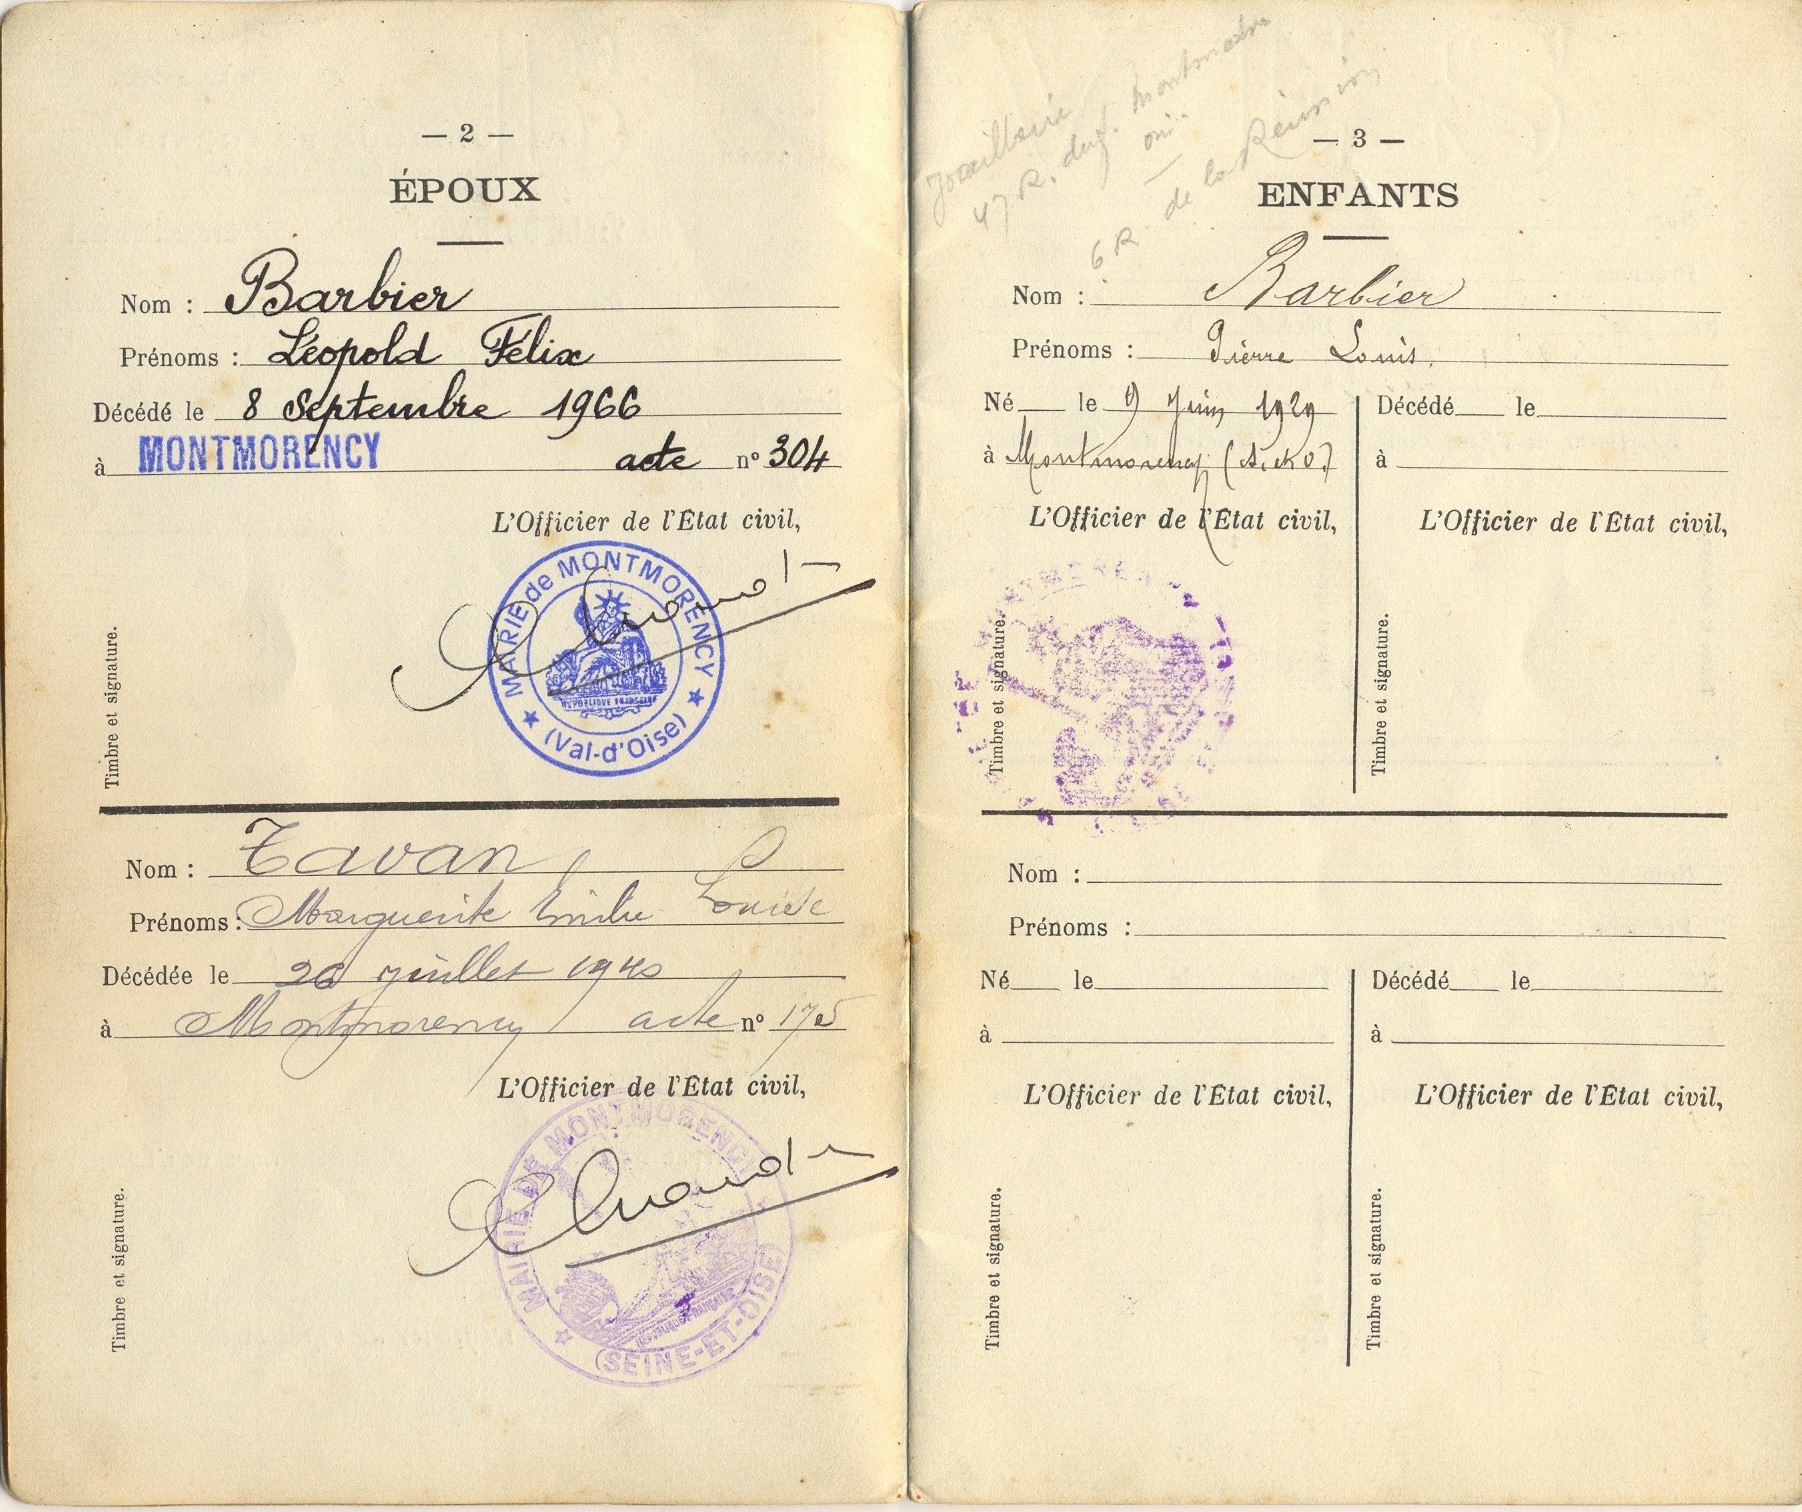 — 2 —
ÉPOUX
Nom : Barbier
Prénoms : Léopold Félix
Décédé le 8 Septembre 1966
à MONTMORENCY acte nº 304
L'Officier de l'État civil,
MAIRIE de MONTMORENCY
RÉPUBLIQUE FRANÇAISE
(Val-d'Oise)
Timbre et signature.
Nom : Tavan
Prénoms : Marguerite Emilie Louise
Décédée le 26 juillet 1940
à Montmorency acte nº 175
L'Officier de l'État civil,
MAIRIE DE MONTMORENCY
(SEINE-ET-OISE)
Timbre et signature.
Joaillerie
47 R. du Montmartre
6 R. de la Réunion
— 3 —
ENFANTS
Nom : Barbier
Prénoms : Pierre Louis
Né le 9 Juin 1929
à Montmorency (S. et O.)
L'Officier de l'État civil,
Timbre et signature.
Décédé le
à
L'Officier de l'État civil,
Timbre et signature.
Nom :
Prénoms :
Né le
à
L'Officier de l'État civil,
Timbre et signature.
Décédé le
à
L'Officier de l'État civil,
Timbre et signature.